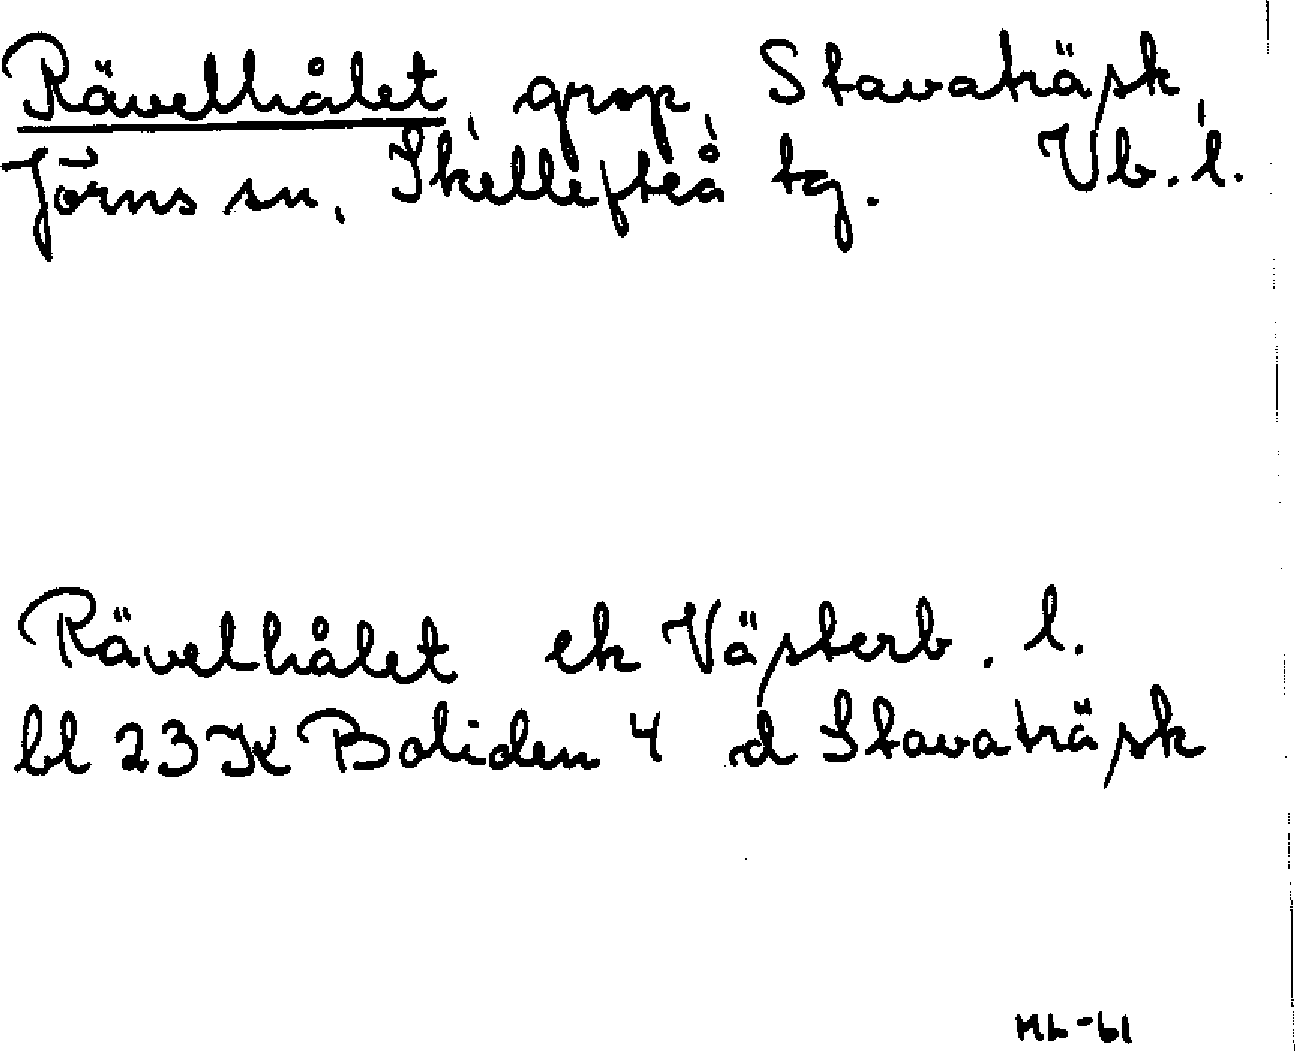 Rävelhålet, grop, Stavaträsk,
Jörns sn, Skellefteå tg. Vb. l.
Rävelhålet ek Västerb. l.
bl 23K Boliden 4 d Stavaträsk
ML-61